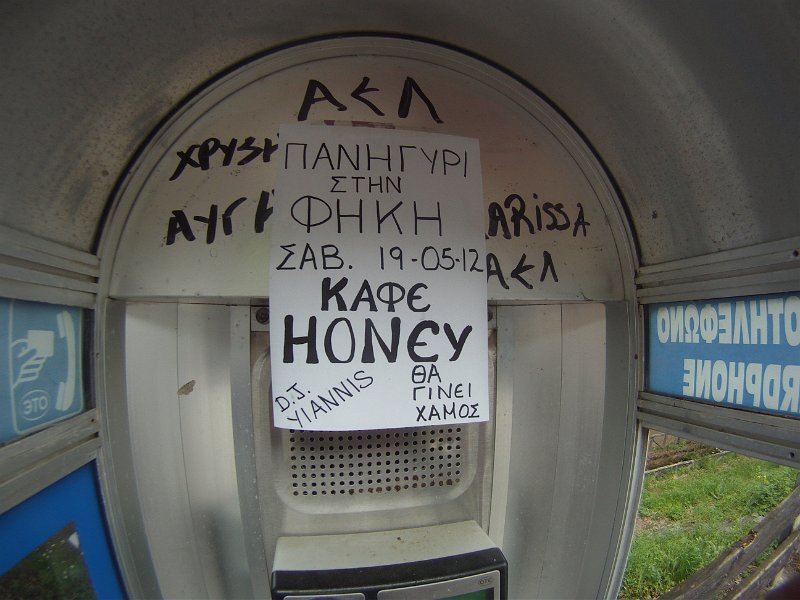 ΑΕΛ
ΧΡΥΣΗ
ΑΥΓΗ
ΠΑΝΗΓΥΡΙ
ΣΤΗΝ
ΦΗΚΗ
ΣΑΒ. 19-05-12
ΚΑΦΕ
HONEY
D.J. YIANNIS
ΘΑ
ΓΙΝΕΙ
ΧΑΜΟΣ
ARISSA
ΑΕΛ
ΟΤΗΛΕΦΩΝΟ
RDPHONE
ΟΤΕ